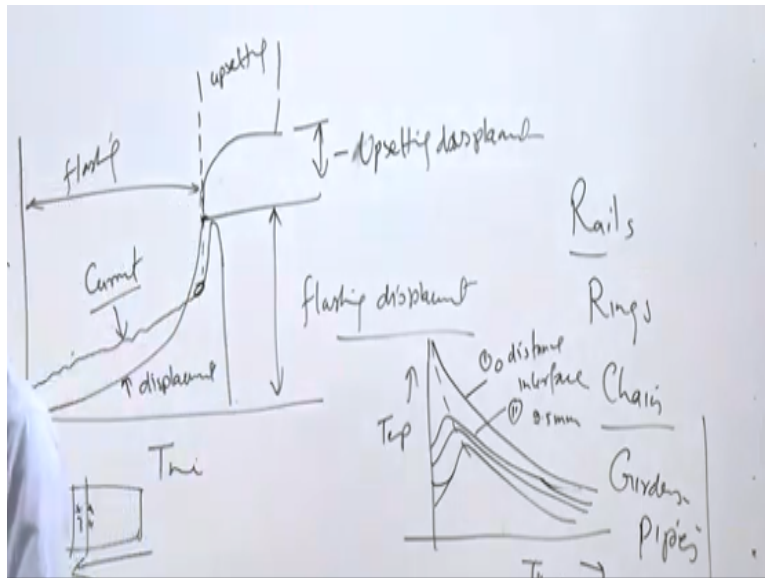 upsetting
flashing
Upsetting displacement
Current
flashing displacement
displacement
Time
Rails
Rings
Chain
Girders
Pipes
Temp
① 0 distance
interface
② 0.5mm